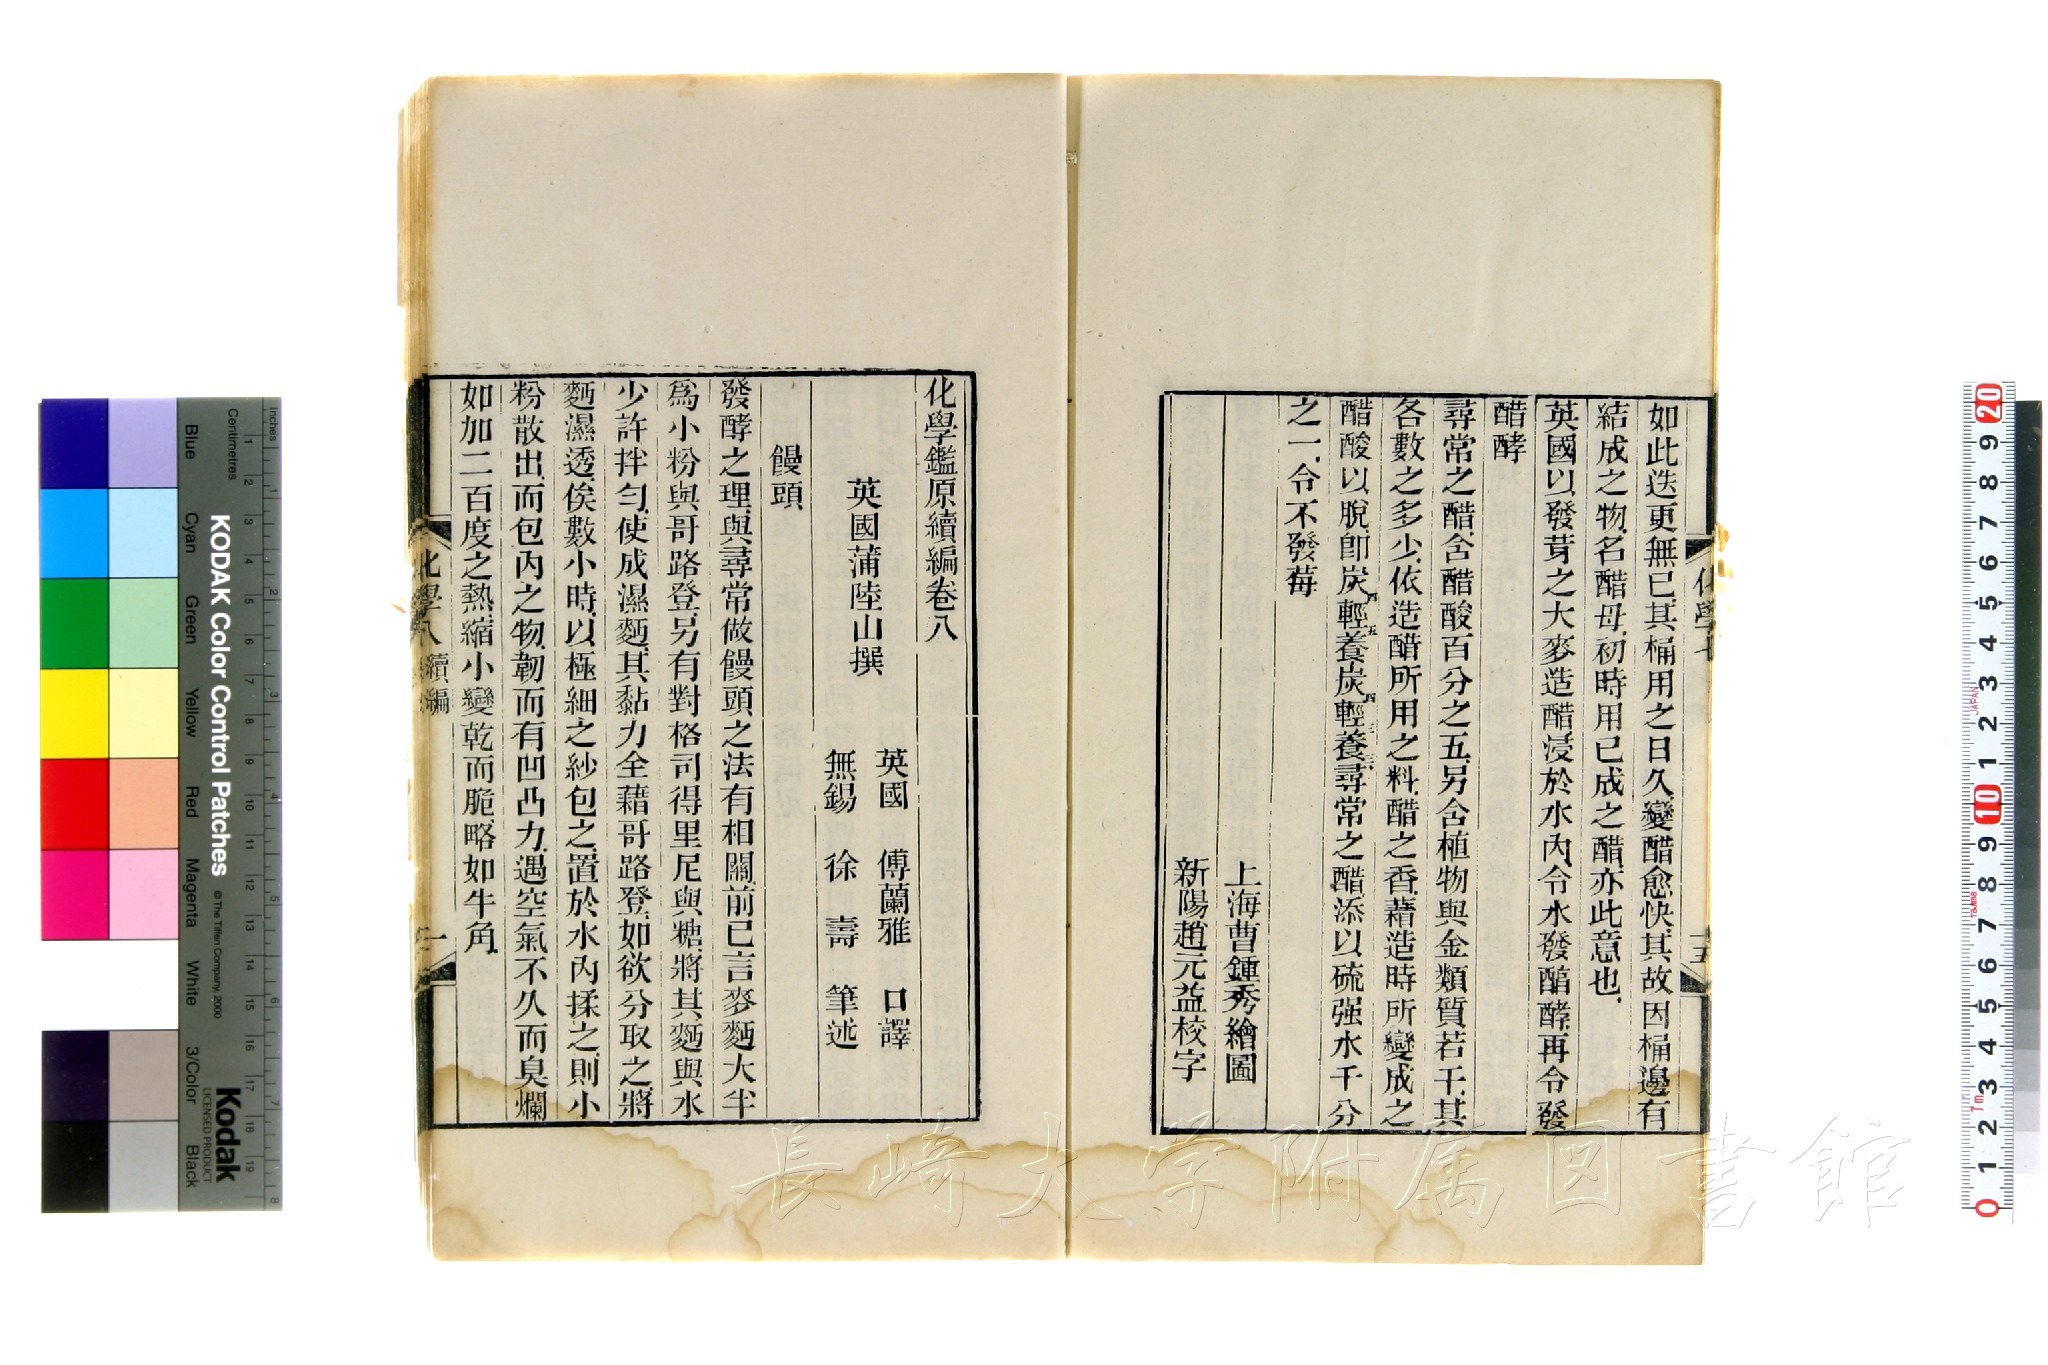 如此迭更無已其桶用之日久變醋愈快其故因桶邊有
結成之物名醋母初時用已成之醋亦此意也
英國以發芽之大麥造醋浸於水內令水發酯酵再令發
醋酵
尋常之醋含醋酸百分之五另含植物與金類質若干其
各數之多少依造醋所用之料醋之香藉造時所變成之
醋酸以脫即炭四輕五養炭四輕三養三尋常之醋添以硫强水千分
之一令不發莓
上海曹鍾秀繪圖
新陽趙元益校字
化學鑑原續編卷八
英國蒲陸山撰
英國 傅蘭雅 口譯
無錫 徐壽 筆述
饅頭
發酵之理與尋常做饅頭之法有相關前已言麥麪大半
爲小粉與哥路登另有對格司得里尼與糖將其麪與水
少許拌勻使成濕麪其黏力全藉哥路登如欲分取之將
麪濕透俟數小時以極細之紗包之置於水內揉之則小
粉散出而包內之物韌而有凹凸力遇空氣不久而臭爛
如加二百度之熱縮小變乾而脆略如牛角
化學八 續編
一
長崎大学附属図書館
KODAK Color Control Patches
© The Tiffen Company, 2000
Kodak
LICENSED PRODUCT
Inches
Centimetres
Blue
Cyan
Green
Yellow
Red
Magenta
White
3/Color
Black
1 2 3 4 5 6 7 8 9 10 11 12 13 14 15 16 17 18 19
20 9 8 7 6 5 4 3 2 1 10 9 8 7 6 5 4 3 2 1 0
JAPAN
Tajima
1m